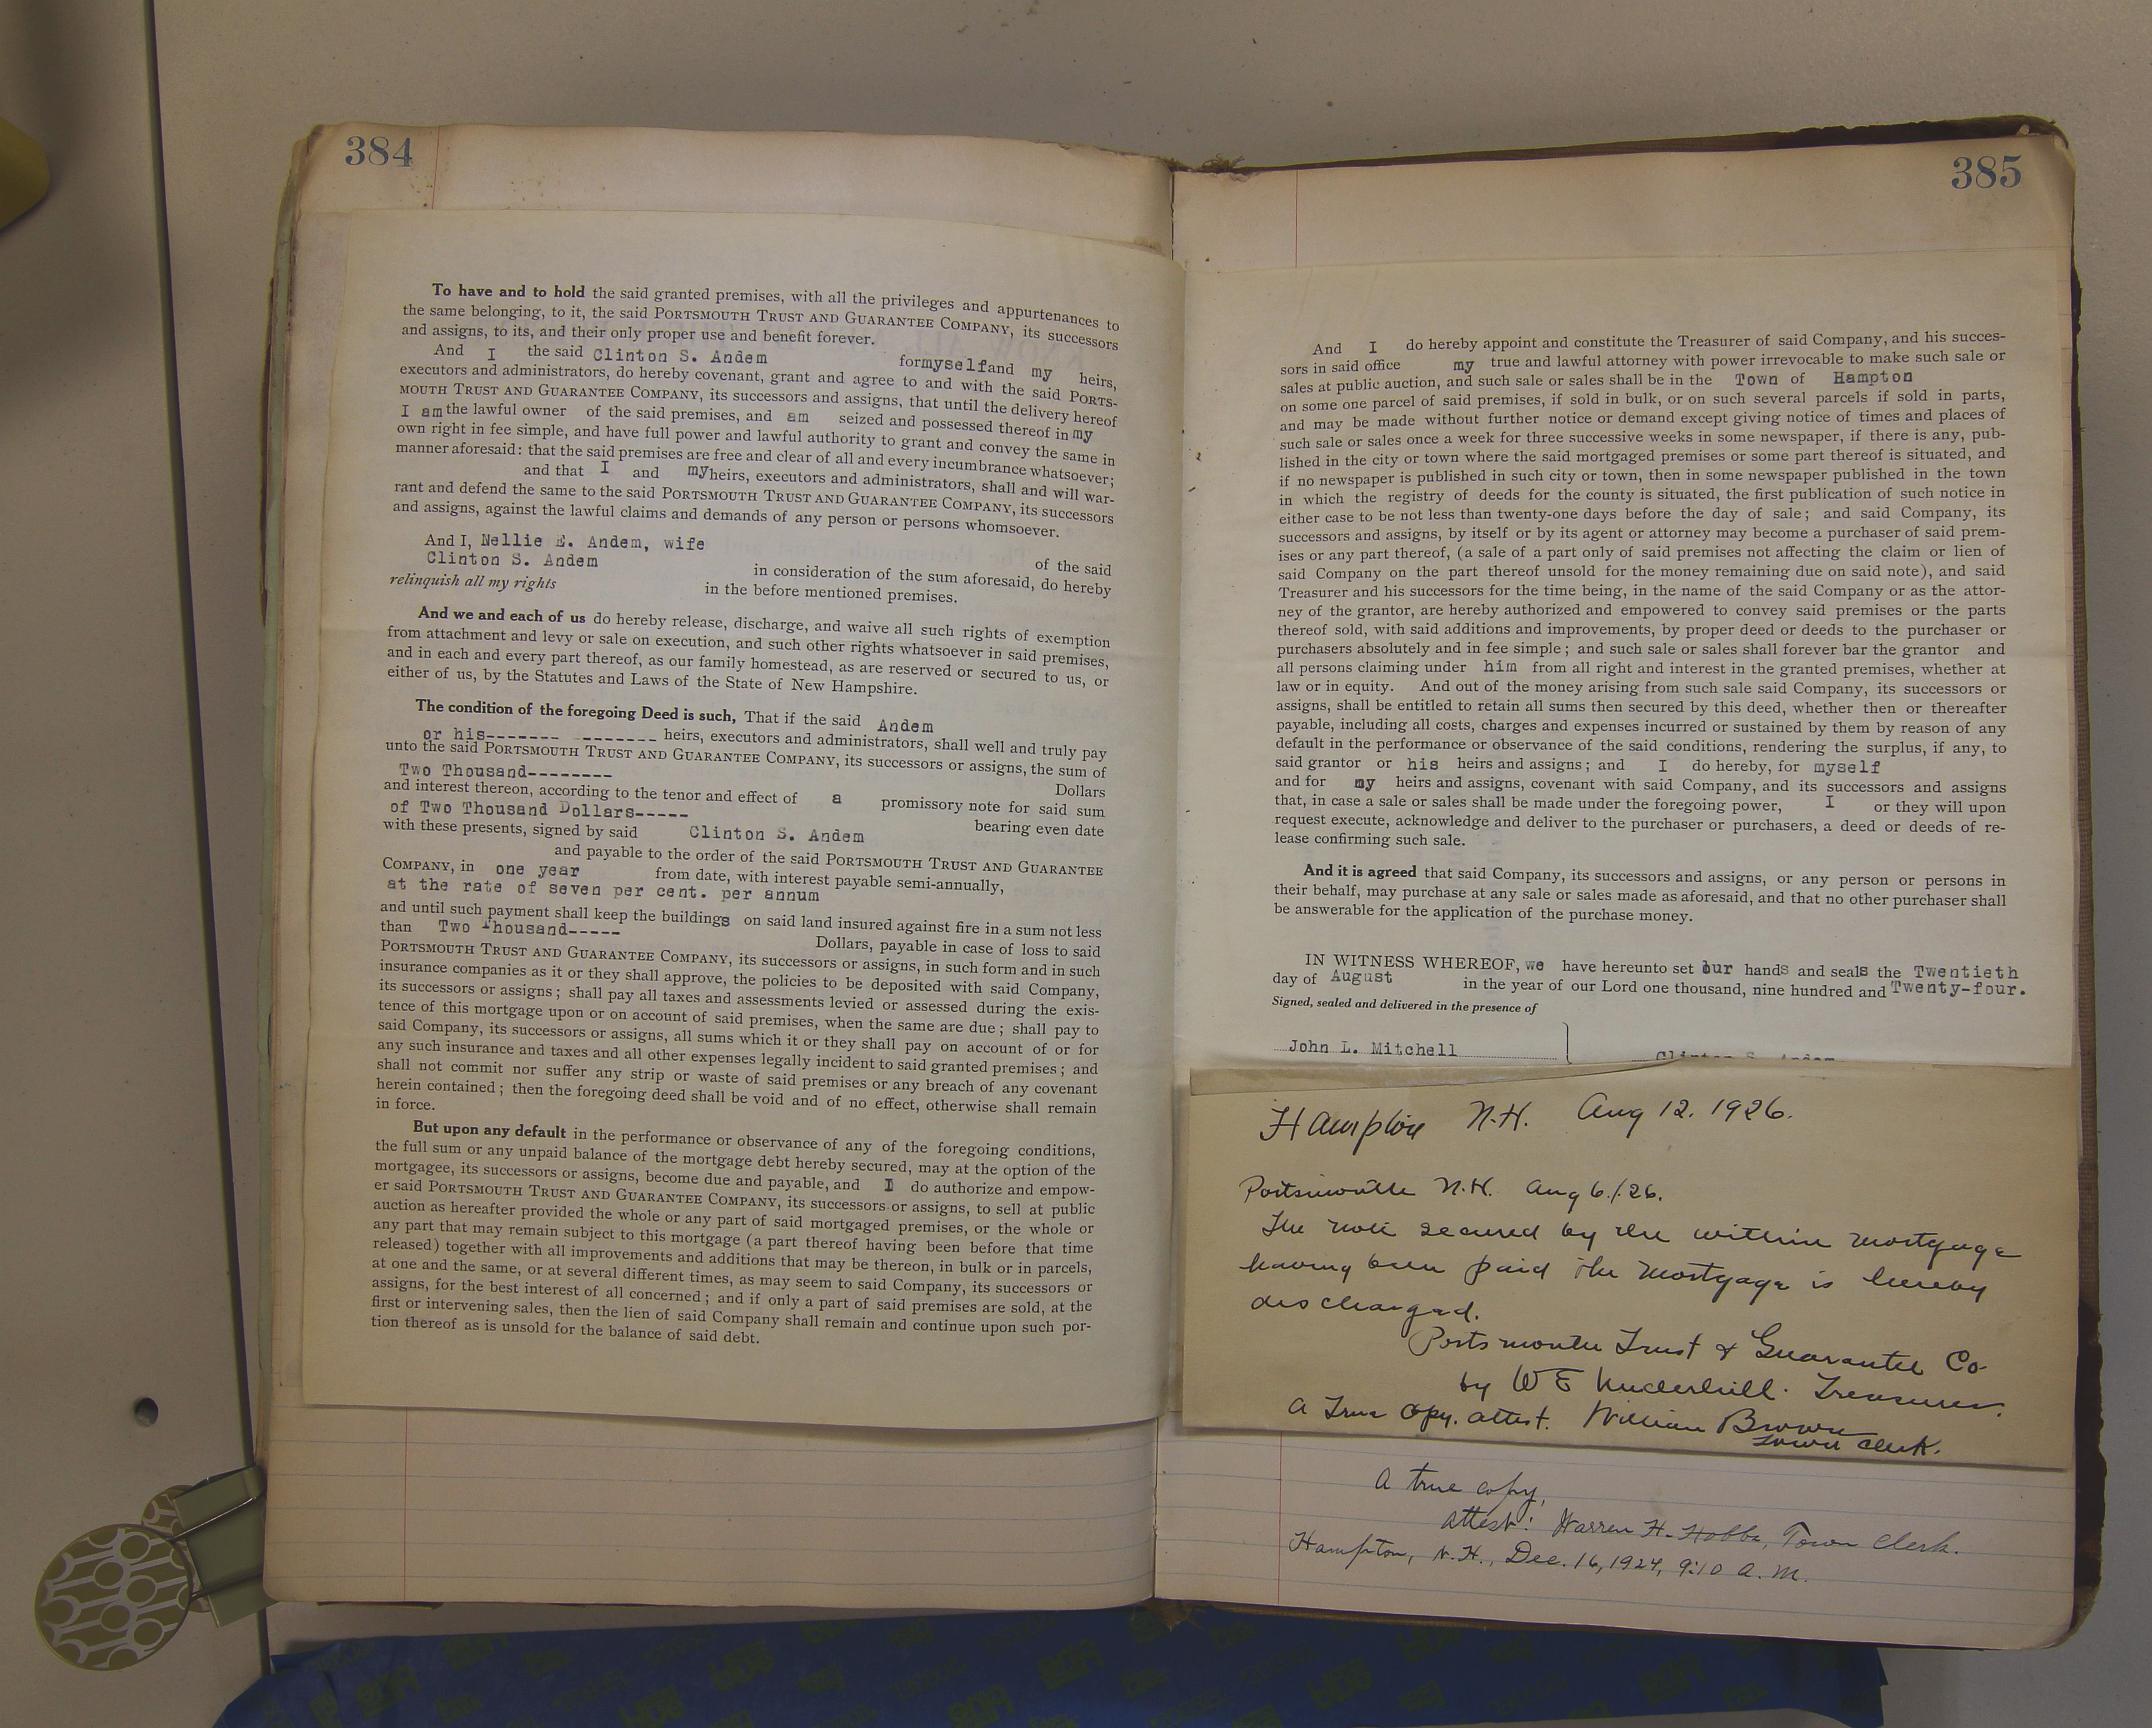 384
To have and to hold the said granted premises, with all the privileges and appurtenances to
the same belonging, to it, the said PORTSMOUTH TRUST AND GUARANTEE COMPANY, its successors
and assigns, to its, and their only proper use and benefit forever.
And I the said Clinton S. Andem for myself and my heirs,
executors and administrators, do hereby covenant, grant and agree to and with the said PORTS-
MOUTH TRUST AND GUARANTEE COMPANY, its successors and assigns, that until the delivery hereof
I am the lawful owner of the said premises, and am seized and possessed thereof in my
own right in fee simple, and have full power and lawful authority to grant and convey the same in
manner aforesaid: that the said premises are free and clear of all and every incumbrance whatsoever;
and that I and my heirs, executors and administrators, shall and will war-
rant and defend the same to the said PORTSMOUTH TRUST AND GUARANTEE COMPANY, its successors
and assigns, against the lawful claims and demands of any person or persons whomsoever.
And I, Nellie E. Andem, wife of the said
Clinton S. Andem in consideration of the sum aforesaid, do hereby
relinquish all my rights in the before mentioned premises.
And we and each of us do hereby release, discharge, and waive all such rights of exemption
from attachment and levy or sale on execution, and such other rights whatsoever in said premises,
and in each and every part thereof, as our family homestead, as are reserved or secured to us, or
either of us, by the Statutes and Laws of the State of New Hampshire.
The condition of the foregoing Deed is such, That if the said Andem
or his------- ------- heirs, executors and administrators, shall well and truly pay
unto the said PORTSMOUTH TRUST AND GUARANTEE COMPANY, its successors or assigns, the sum of
Two Thousand-------- Dollars
and interest thereon, according to the tenor and effect of a promissory note for said sum
of Two Thousand Dollars----- bearing even date
with these presents, signed by said Clinton S. Andem
and payable to the order of the said PORTSMOUTH TRUST AND GUARANTEE
COMPANY, in one year from date, with interest payable semi-annually,
at the rate of seven per cent. per annum
and until such payment shall keep the buildings on said land insured against fire in a sum not less
than Two Thousand----- Dollars, payable in case of loss to said
PORTSMOUTH TRUST AND GUARANTEE COMPANY, its successors or assigns, in such form and in such
insurance companies as it or they shall approve, the policies to be deposited with said Company,
its successors or assigns; shall pay all taxes and assessments levied or assessed during the exis-
tence of this mortgage upon or on account of said premises, when the same are due; shall pay to
said Company, its successors or assigns, all sums which it or they shall pay on account of or for
any such insurance and taxes and all other expenses legally incident to said granted premises; and
shall not commit nor suffer any strip or waste of said premises or any breach of any covenant
herein contained; then the foregoing deed shall be void and of no effect, otherwise shall remain
in force.
But upon any default in the performance or observance of any of the foregoing conditions,
the full sum or any unpaid balance of the mortgage debt hereby secured, may at the option of the
mortgagee, its successors or assigns, become due and payable, and I do authorize and empow-
er said PORTSMOUTH TRUST AND GUARANTEE COMPANY, its successors or assigns, to sell at public
auction as hereafter provided the whole or any part of said mortgaged premises, or the whole or
any part that may remain subject to this mortgage (a part thereof having been before that time
released) together with all improvements and additions that may be thereon, in bulk or in parcels,
at one and the same, or at several different times, as may seem to said Company, its successors or
assigns, for the best interest of all concerned; and if only a part of said premises are sold, at the
first or intervening sales, then the lien of said Company shall remain and continue upon such por-
tion thereof as is unsold for the balance of said debt.
385
And I do hereby appoint and constitute the Treasurer of said Company, and his succes-
sors in said office my true and lawful attorney with power irrevocable to make such sale or
sales at public auction, and such sale or sales shall be in the Town of Hampton
on some one parcel of said premises, if sold in bulk, or on such several parcels if sold in parts,
and may be made without further notice or demand except giving notice of times and places of
such sale or sales once a week for three successive weeks in some newspaper, if there is any, pub-
lished in the city or town where the said mortgaged premises or some part thereof is situated, and
if no newspaper is published in such city or town, then in some newspaper published in the town
in which the registry of deeds for the county is situated, the first publication of such notice in
either case to be not less than twenty-one days before the day of sale; and said Company, its
successors and assigns, by itself or by its agent or attorney may become a purchaser of said prem-
ises or any part thereof, (a sale of a part only of said premises not affecting the claim or lien of
said Company on the part thereof unsold for the money remaining due on said note), and said
Treasurer and his successors for the time being, in the name of the said Company or as the attor-
ney of the grantor, are hereby authorized and empowered to convey said premises or the parts
thereof sold, with said additions and improvements, by proper deed or deeds to the purchaser or
purchasers absolutely and in fee simple; and such sale or sales shall forever bar the grantor and
all persons claiming under him from all right and interest in the granted premises, whether at
law or in equity. And out of the money arising from such sale said Company, its successors or
assigns, shall be entitled to retain all sums then secured by this deed, whether then or thereafter
payable, including all costs, charges and expenses incurred or sustained by them by reason of any
default in the performance or observance of the said conditions, rendering the surplus, if any, to
said grantor or his heirs and assigns; and I do hereby, for myself
and for my heirs and assigns, covenant with said Company, and its successors and assigns
that, in case a sale or sales shall be made under the foregoing power, I or they will upon
request execute, acknowledge and deliver to the purchaser or purchasers, a deed or deeds of re-
lease confirming such sale.
And it is agreed that said Company, its successors and assigns, or any person or persons in
their behalf, may purchase at any sale or sales made as aforesaid, and that no other purchaser shall
be answerable for the application of the purchase money.
IN WITNESS WHEREOF, we have hereunto set our hands and seals the Twentieth
day of August in the year of our Lord one thousand, nine hundred and Twenty-four.
Signed, sealed and delivered in the presence of
John L. Mitchell Clinton S. Andem
Hampton N.H. Aug 12. 1926.
Portsmouth N.H. Aug 6./26.
The note secured by the within mortgage
having been paid the mortgage is hereby
discharged.
Portsmouth Trust & Guarantee Co
by W E Underhill. Treasurer.
A True Copy. attest. William Brown
Town Clerk.
A true copy,
attest: Warren H. Hobbs, Town Clerk.
Hampton, N.H., Dec. 16, 1924, 9:10 A.M.